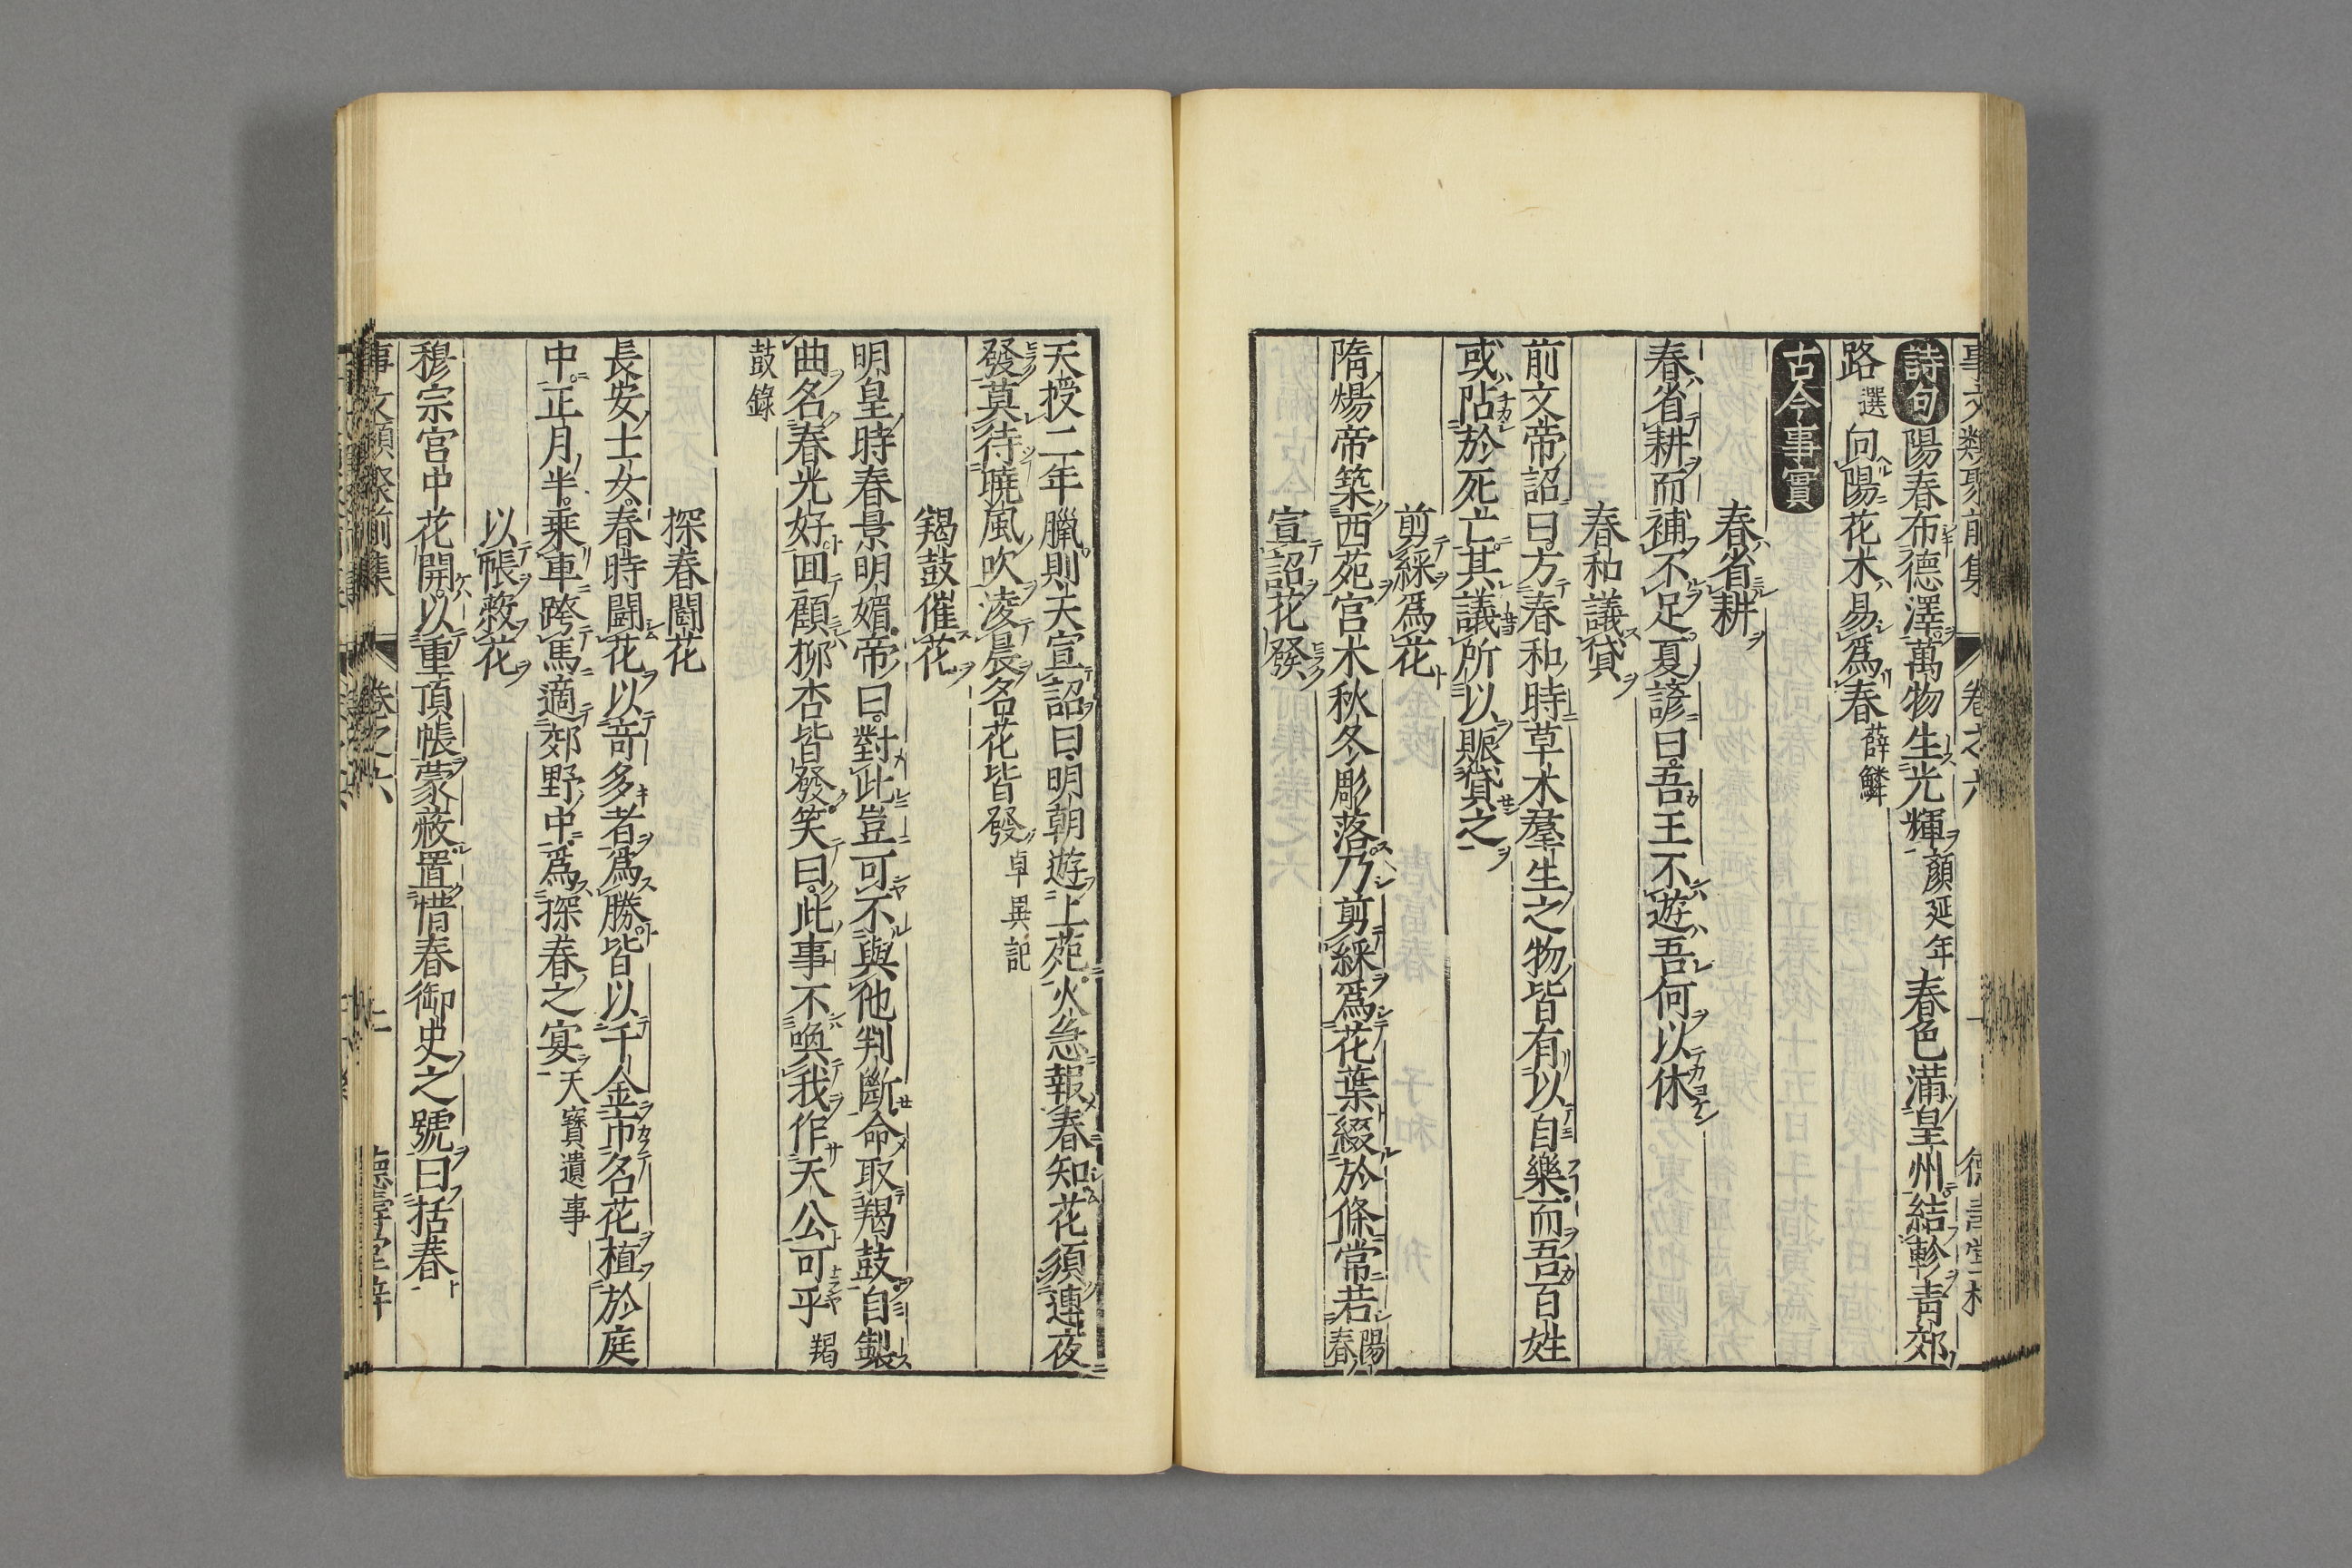 事文類聚前集 卷之六 一 德壽堂梓
詩句 陽春布德澤萬物生光輝 顏延年 春色滿皇州結軫青郊
路 選 向陽花木易爲春 薛鱗
古今事實
春省耕
春省耕而補不足夏諺曰吾王不遊吾何以休
春和議貸
前文帝詔曰方春和時草木羣生之物皆有以自樂而吾百姓
或阽於死亡其議所以賑貸之
剪綵爲花
隋煬帝築西苑宫木秋冬彫落乃剪綵爲花葉綴於條常若 陽春
宣詔花發
天授二年臘則天宣詔曰明朝遊上苑火急報春知花須連夜
發莫待曉風吹凌晨名花皆發 卓異記
羯鼓催花
明皇時春景明媚帝曰對此豈可不與他判斷命取羯鼓自製
曲名春光好囬顧柳杏皆發笑曰此事不喚我作天公可乎 羯
鼓錄
探春鬪花
長安士女春時鬪花以竒多者爲勝皆以千金市名花植於庭
中正月半乘車跨馬適郊野中爲探春之宴 天寶遺事
以帳蔽花
穆宗宫中花開以重頂帳蒙蔽置惜春御史之號曰括春
事文類聚前集 卷之六 二 德壽堂梓